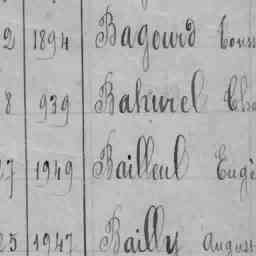 2 1894 Bagourd
8 939 Bahurel
7 1949 Bailleul Eugè
25 1947 Bailly August